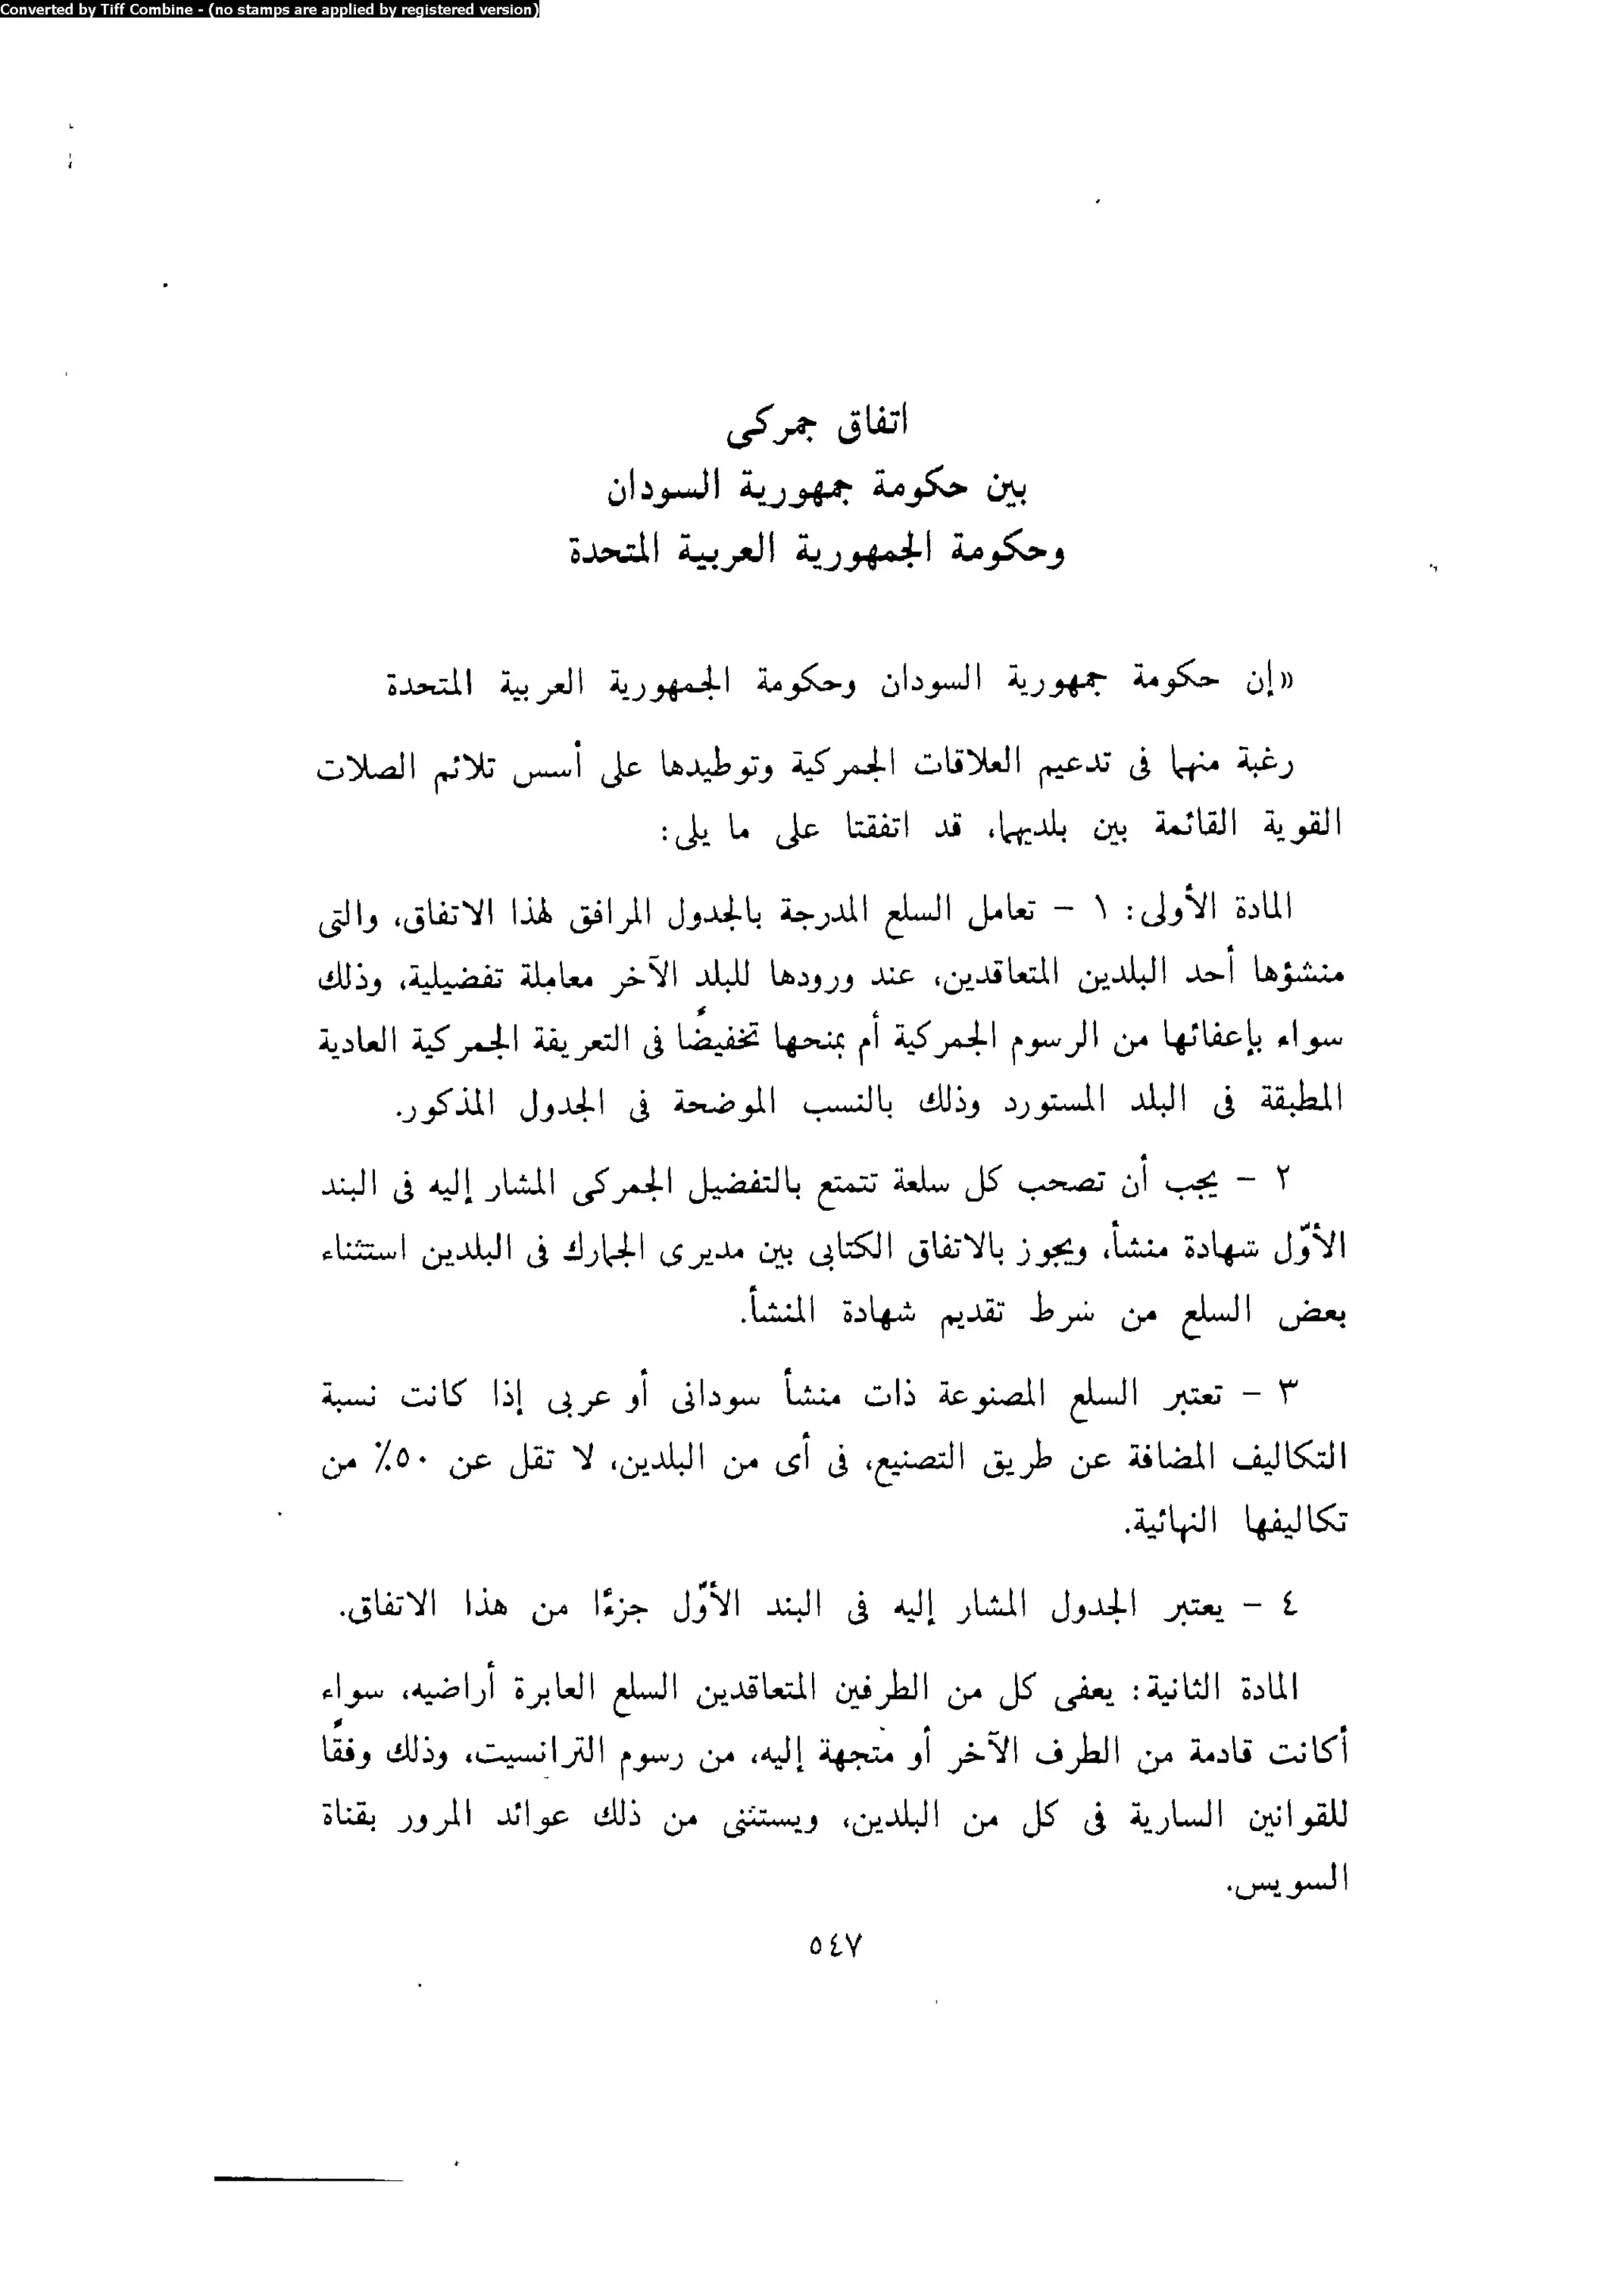 Converted by Tiff Combine - (no stamps are applied by registered version)
اتفاق جمركى
بين حكومة جمهورية السودان
وحكومة الجمهورية العربية المتحدة
«إن حكومة جمهورية السودان وحكومة الجمهورية العربية المتحدة
رغبة منهما فى تدعيم العلاقات الجمركية وتوطيدها على أسس تلائم الصلات
القوية القائمة بين بلديهما، قد اتفقتا على ما يلى:
المادة الأولى: ١ – تعامل السلع المدرجة بالجدول المرافق لهذا الاتفاق، والتى
منشؤها أحد البلدين المتعاقدين، عند ورودها للبلد الآخر معاملة تفضيلية، وذلك
سواء بإعفائها من الرسوم الجمركية أم بمنحها تخفيضًا فى التعريفة الجمركية العادية
المطبقة فى البلد المستورد وذلك بالنسب الموضحة فى الجدول المذكور.
٢ – يجب أن تصحب كل سلعة تتمتع بالتفضيل الجمركى المشار إليه فى البند
الأوّل شهادة منشأ، ويجوز بالاتفاق الكتابى بين مديرى الجمارك فى البلدين استثناء
بعض السلع من شرط تقديم شهادة المنشأ.
٣ – تعتبر السلع المصنوعة ذات منشأ سودانى أو عربى إذا كانت نسبة
التكاليف المضافة عن طريق التصنيع، فى أى من البلدين، لا تقل عن ٥٠٪ من
تكاليفها النهائية.
٤ – يعتبر الجدول المشار إليه فى البند الأوّل جزءًا من هذا الاتفاق.
المادة الثانية: يعفى كل من الطرفين المتعاقدين السلع العابرة أراضيه، سواء
أكانت قادمة من الطرف الآخر أو متجهة إليه، من رسوم الترانسيت، وذلك وفقًا
للقوانين السارية فى كل من البلدين، ويستثنى من ذلك عوائد المرور بقناة
السويس.
٥٤٧